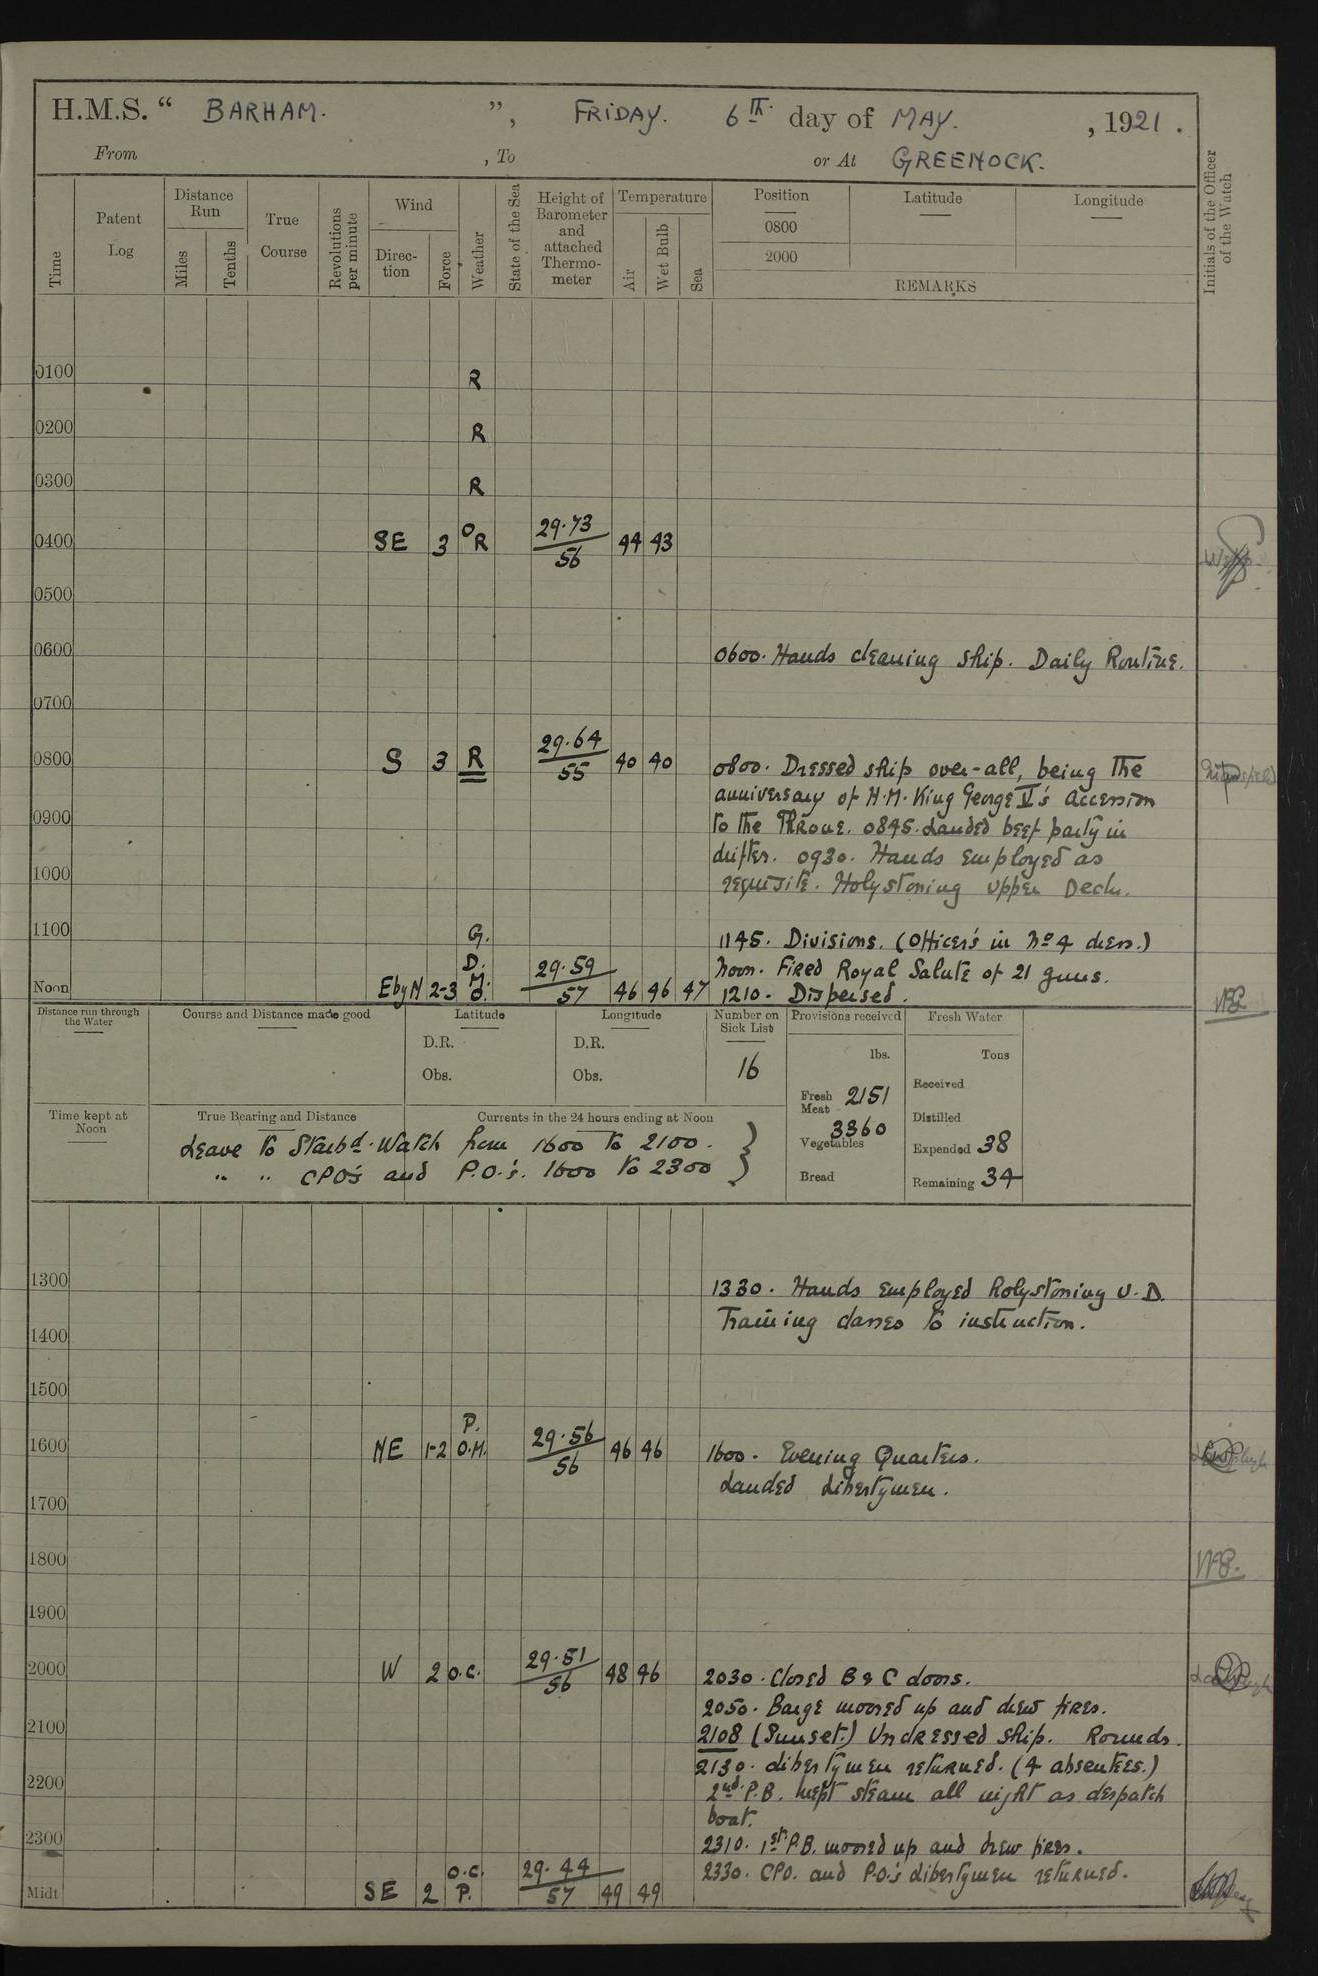 H.M.S. “ BARHAM. ”, FRIDAY. 6th. day of MAY. , 1921.
From , To or At GREENOCK.
Time
Patent Log
Distance Run
Miles
Tenths
True Course
Revolutions per minute
Wind
Direc-tion
Force
Weather
State of the Sea
Height of Barometer and attached Thermo-meter
Temperature
Air
Wet Bulb
Sea
Position
0800
2000
Latitude
Longitude
REMARKS
Initials of the Officer of the Watch
0100 R
0200 R
0300 R
0400 SE 3 O R 29.73 56 44 43
0500
0600 0600. Hands cleaning ship. Daily Routine.
0700
0800 S 3 R 29.64 55 40 40 0800. Dressed ship over-all, being the
anniversary of H.M. King George V's Accession
0900 to the Throne. 0845. Landed beef party in
drifter. 0930. Hands employed as
1000 requisite. Holystoning Upper Deck.
1100 G. 1145. Divisions. (Officer's in No 4 dress.)
D. 29.59 Noon. Fired Royal Salute of 21 guns.
Noon E by N 2-3 O. 57 46 46 47 1210. Dispersed.
Distance run through the Water
Course and Distance made good
Latitude
D.R.
Obs.
Longitude
D.R.
Obs.
Number on Sick List
16
Provisions received
lbs.
Fresh Meat 2151
Vegetables 3360
Bread
Fresh Water
Tons
Received
Distilled
Expended 38
Remaining 34
Time kept at Noon
True Bearing and Distance
Currents in the 24 hours ending at Noon
Leave to Starbd. Watch from 1600 to 2100.
" " CPO's and P.O.'s. 1600 to 2300
1300 1330. Hands employed holystoning U.D.
1400 Training classes to instruction.
1500
P.
1600 NE 1-2 O.M. 29.56 56 46 46 1600. Evening Quarters.
Landed libertymen.
1700
1800
1900
2000 W 2 O.C. 29.51 56 48 46 2030. Closed B & C doors.
2050. Barge moored up and drew fires.
2100 2108 (Sunset.) Undressed ship. Rounds.
2130. libertymen returned. (4 absentees.)
2200 2nd. P.B. kept steam all night as despatch
boat.
2300 2310. 1st P.B. moored up and drew fires.
O.C. 29.44 2330. CPO. and P.O.'s libertymen returned.
Midt SE 2 P. 57 49 49